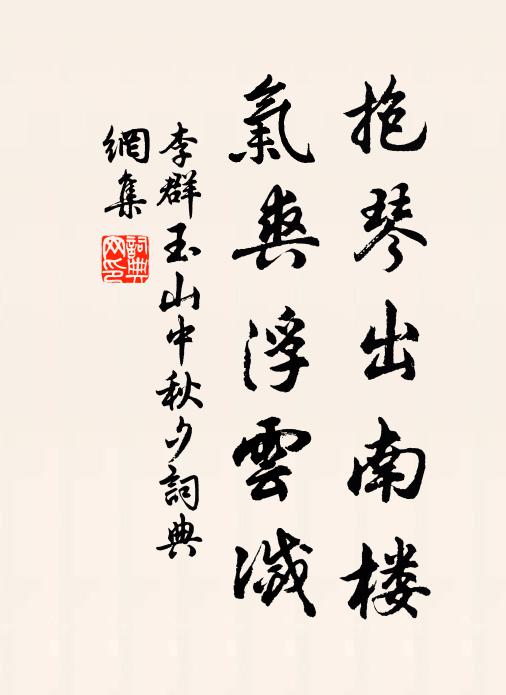 抱琴出南楼
氣爽浮雲滅
李群玉山中秋夕詞典
網集
詞典
网印